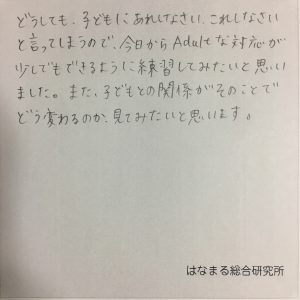 どうしても、子どもにあれしなさい、これしなさい
と言ってしまうので、今日からAdultな対応が
少しでもできるように練習してみたいと思い
ました。また、子どもとの関係がそのことで
どう変わるのか、見てみたいと思います。
はなまる総合研究所